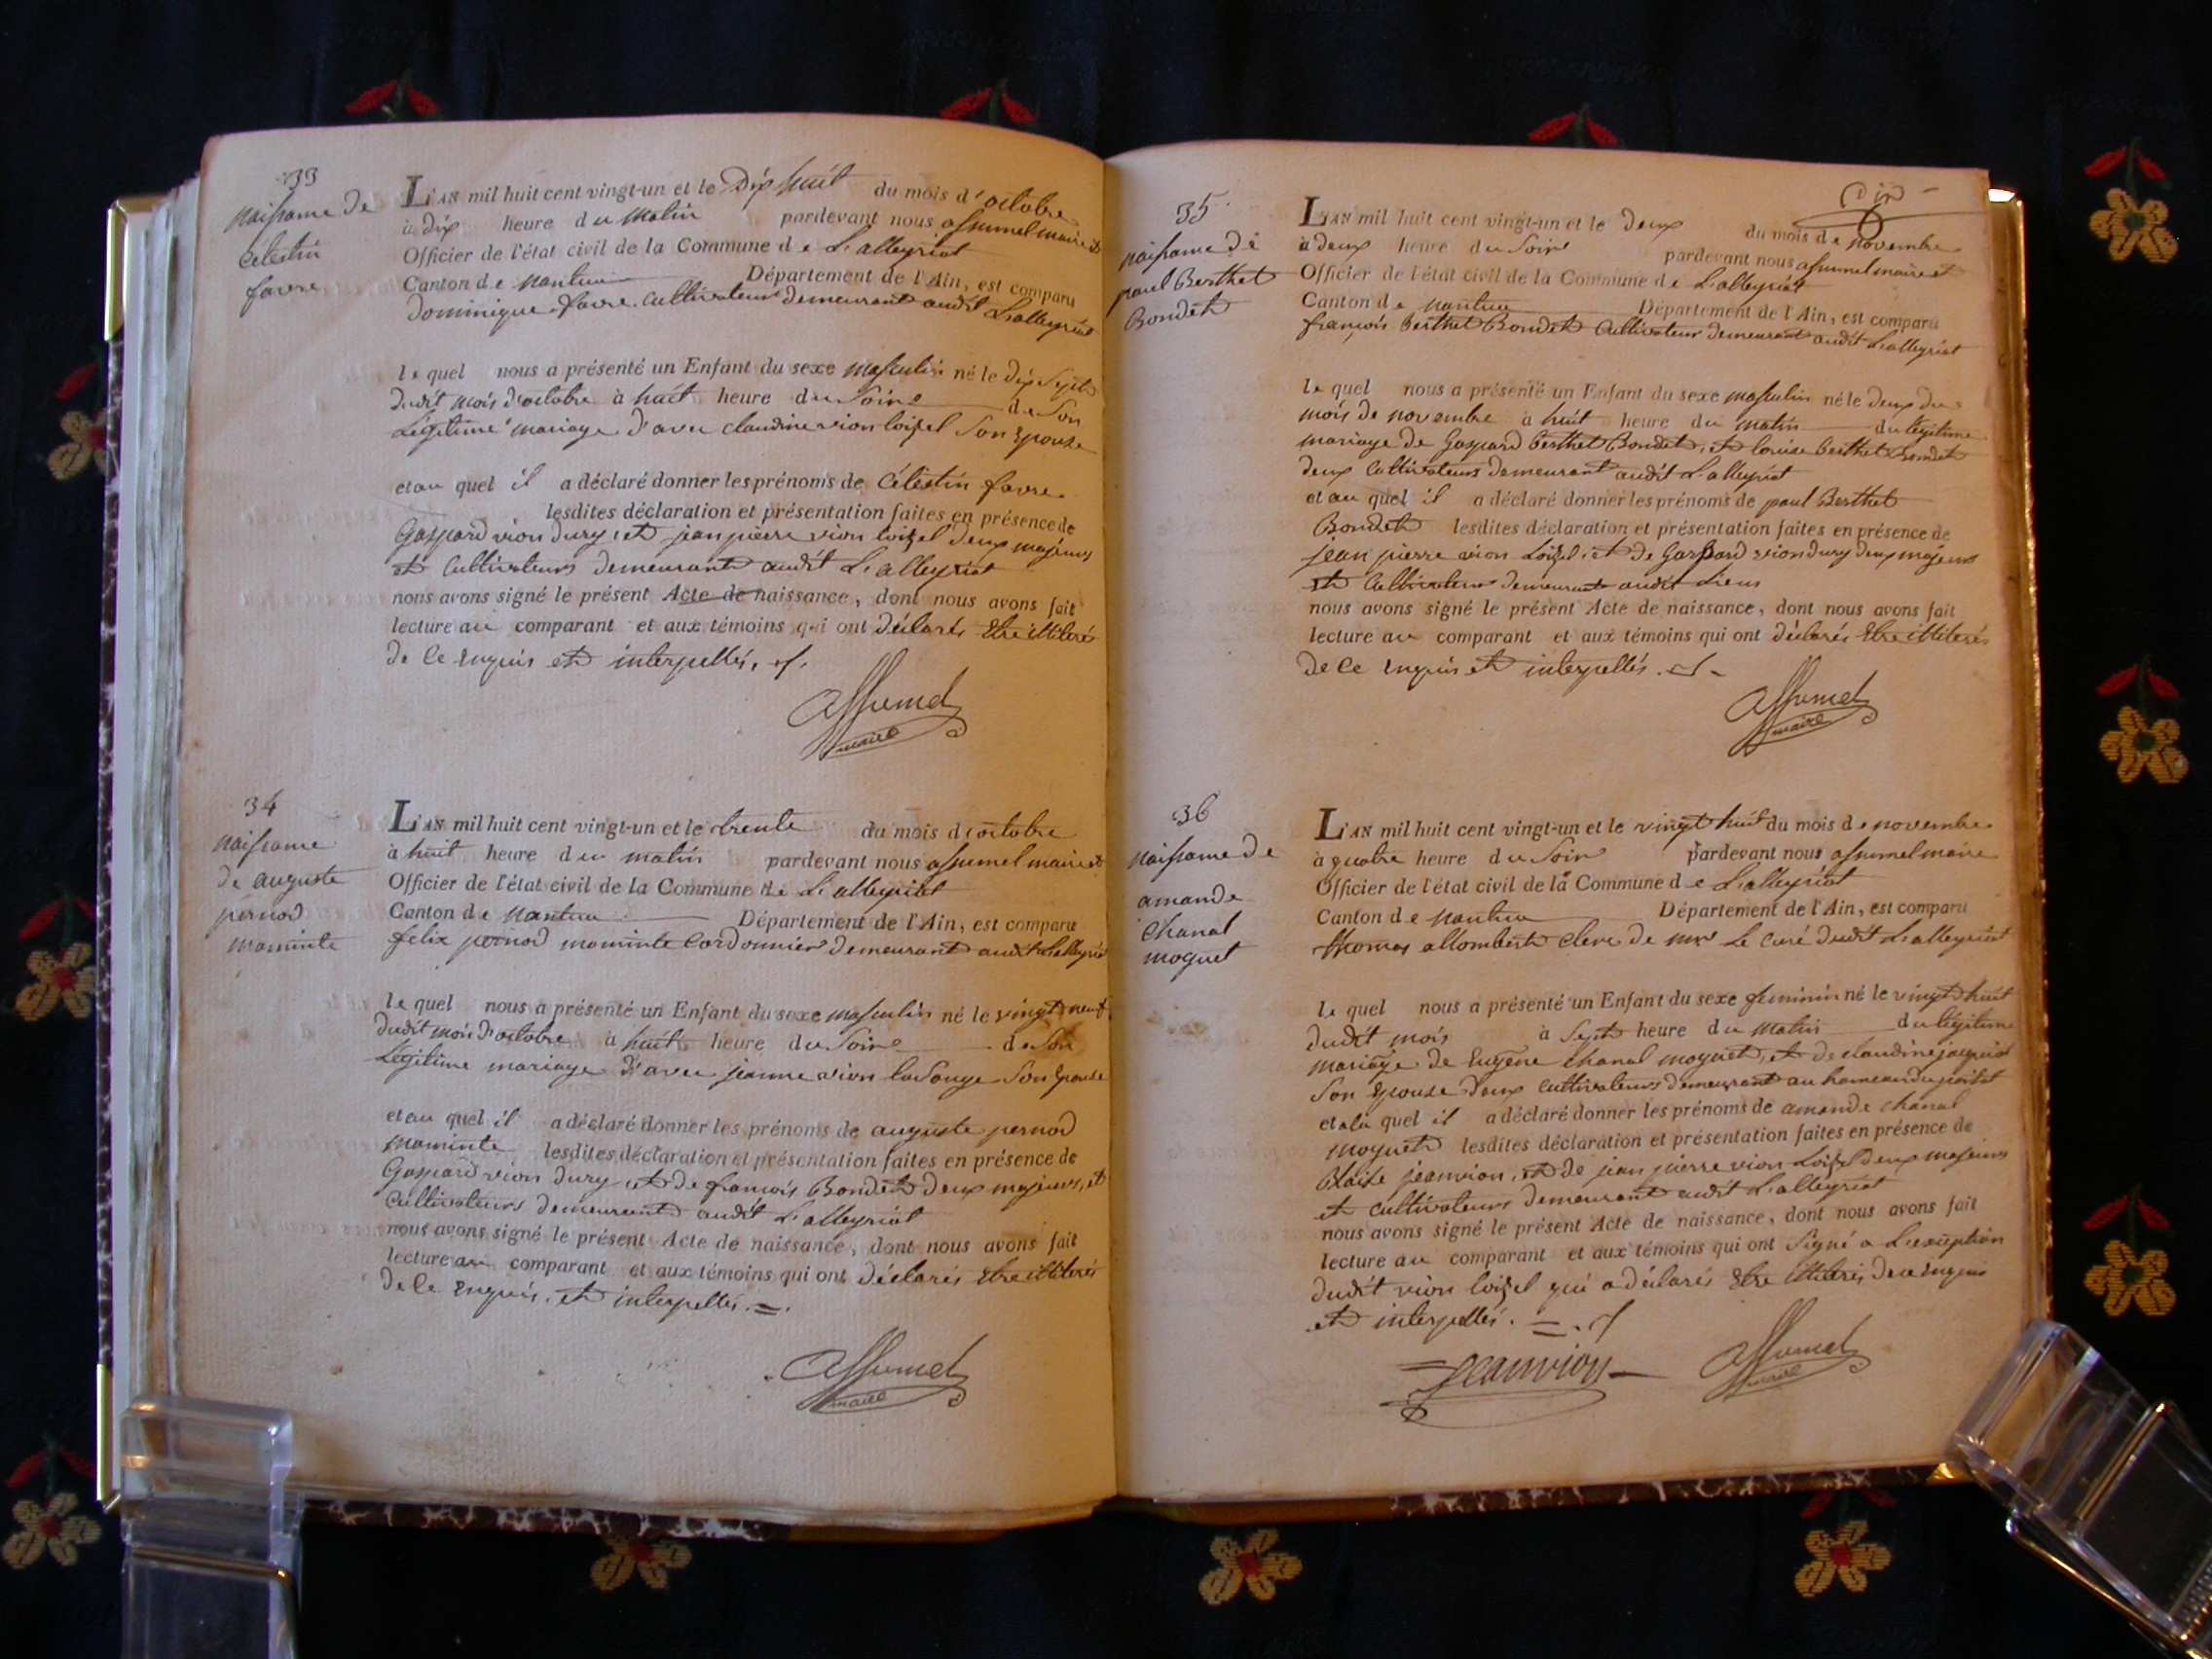 33
naissance de
Célestin
favre
L'AN mil huit cent vingt-un et le Dix huit du mois d'octobre
à dix heure du matin pardevant nous assumel maire et
Officier de l'état civil de la Commune de L'alleyriat
Canton de nantua Département de l'Ain, est comparu
Dominique favre Cultivateur demeurant audit L'alleyriat
lequel nous a présenté un Enfant du sexe masculin né le dix sept
dudit mois d'octobre à huit heure du Soire de Son
Légitime mariage d'avec claudine vion loizel Son Epouse
et au quel il a déclaré donner les prénoms de Célestin favre
lesdites déclaration et présentation faites en présence de
Gaspard vion dury, et jean pierre vion loizel deux majeurs
et Cultivateurs demeurant audit L'alleyriat
nous avons signé le présent Acte de naissance, dont nous avons fait
lecture au comparant et aux témoins qui ont déclarés Etre illiterés
de Ce Enquis et interpellés.
assumel
maire
34
naissance
de auguste
pernod
maminte
L'AN mil huit cent vingt-un et le trente du mois d'octobre
à huit heure du matin pardevant nous assumel maire et
Officier de l'état civil de la Commune de L'alleyriat
Canton de nantua Département de l'Ain, est comparu
felix pernod maminte Cordonnier demeurant audit L'alleyriat
lequel nous a présenté un Enfant du sexe masculin né le vingt neuf
dudit mois d'octobre à huit heure du Soire de Son
Légitime mariage d'avec jeanne vion laSouge Son Epouse
et au quel il a déclaré donner les prénoms de auguste pernod
maminte lesdites déclaration et présentation faites en présence de
Gaspard vion dury, et de françois Bondet deux majeurs, et
Cultivateurs demeurant audit L'alleyriat
nous avons signé le présent Acte de naissance, dont nous avons fait
lecture au comparant et aux témoins qui ont déclarés Etre illiterés
de Ce Enquis, et interpellés.
assumel
maire
Dix
35
naissance de
paul Berthet
Bondet
L'AN mil huit cent vingt-un et le deux du mois de novembre
à deux heure du Soire pardevant nous assumel maire et
Officier de l'état civil de la Commune de L'alleyriat
Canton de nantua Département de l'Ain, est comparu
françois Berthet Bondet Cultivateur demeurant audit L'alleyriat
lequel nous a présenté un Enfant du sexe masculin né le deux du
mois de novembre à huit heure du matin du légitime
mariage de Gaspard berthet Bondet, et louise berthet Bondet
deux Cultivateurs demeurant audit L'alleyriat
et au quel il a déclaré donner les prénoms de paul Berthet
Bondet lesdites déclaration et présentation faites en présence de
jean pierre vion Loizel, et de Gaspard vion dury deux majeurs
et Cultivateurs demeurant audit Lieux
nous avons signé le présent Acte de naissance, dont nous avons fait
lecture au comparant et aux témoins qui ont déclarés Etre illiterés
de Ce Enquis et interpellés.
assumel
maire
36
naissance de
amande
Chanal
moguet
L'AN mil huit cent vingt-un et le vingt huit du mois de novembre
à quatre heure du Soir pardevant nous assumel maire
Officier de l'état civil de la Commune de L'alleyriat
Canton de nantua Département de l'Ain, est comparu
thomas allombert clerc de mr Le Curé dudit L'alleyriat
Le quel nous a présenté un Enfant du sexe feminin né le vingt huit
dudit mois à Sept heure du Matin du légitime
mariage de Eugene Chanal moguet, et de claudine
Son Epouse deux Cultivateurs demeurant au hameau du
et a la quel il a déclaré donner les prénoms de amande chanal
moguet lesdites déclaration et présentation faites en présence de
blaise jeanvion, et de jean pierre vion Loizel deux majeurs
et Cultivateurs demeurant audit L'alleyriat
nous avons signé le présent Acte de naissance, dont nous avons fait
lecture au comparant et aux témoins qui ont Signé a L'exception
dudit vion loizel qui a déclarés Etre illiterés de ce Enquis
et interpellés.
Jeanvion
assumel
maire